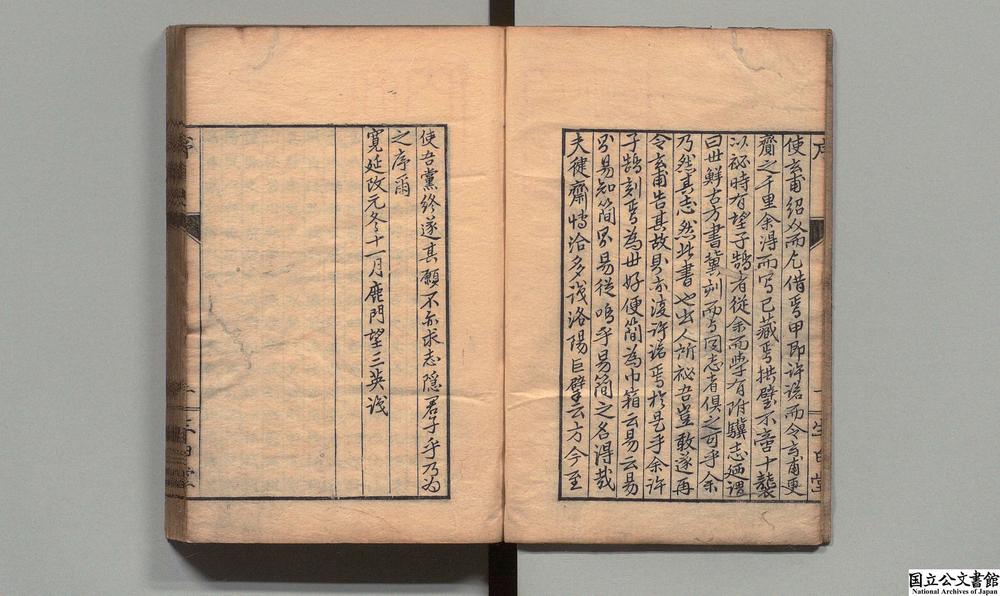 使玄甫紹汊而乞借焉甲即許諾而令玄甫更
齎之千里余得而写已藏焉拱璧不啻十襲
以祕時有望子鵠者從余而學有附驥志廼謂
曰世鮮古方書冀刻而與同志者俱之可乎余
乃然其志然此書也出人所祕吾豈敢遂再
令玄甫告其故則亦復許諾焉於是乎余許
子鵠刻焉為世好便簡為巾箱云易云易
則易知簡則易從嗚乎易簡之名得哉
夫健齋博洽多識洛陽巨擘云方今至
使吾黨終遂其願不亦求志隱君子乎乃為
之序爾
寛延改元冬十一月鹿門望三英識
国立公文書館
National Archives of Japan